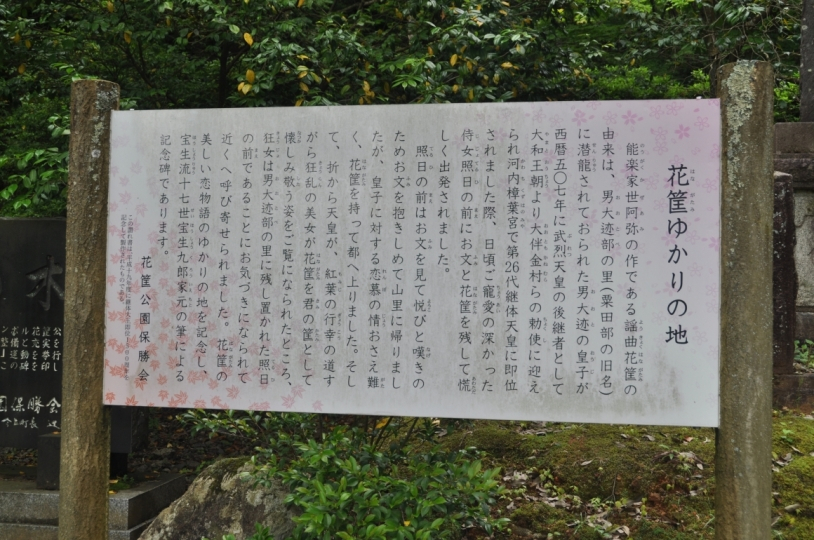 花筐ゆかりの地
能楽家世阿弥の作である謡曲花筐の
由来は、男大迹部の里（粟田部の旧名）
に潜龍されておられた男大迹の皇子が
西暦五〇七年に武烈天皇の後継者として
大和王朝より大伴金村らの勅使に迎え
られ河内樟葉宮で第26代継体天皇に即位
されました際、日頃ご寵愛の深かった
侍女照日の前にお文と花筐を残して慌
しく出発されました。
照日の前はお文を見て悦びと嘆きの
ためお文を抱きしめて山里に帰りまし
たが、皇子に対する恋慕の情おさえ難
く、花筐を持って都へ上りました。そし
て、折から天皇が、紅葉の行幸の道す
がら狂乱の美女が花筐を君の筐として
懐しみ敬う姿をご覧になられたところ、
狂女は男大迹部の里に残し置かれた照日
の前であることにお気づきになられて
近くへ呼び寄せられました。花筐の
美しい恋物語のゆかりの地を記念し、
宝生流十七世宝生九郎家元の筆による
記念碑であります。
花筐公園保勝会